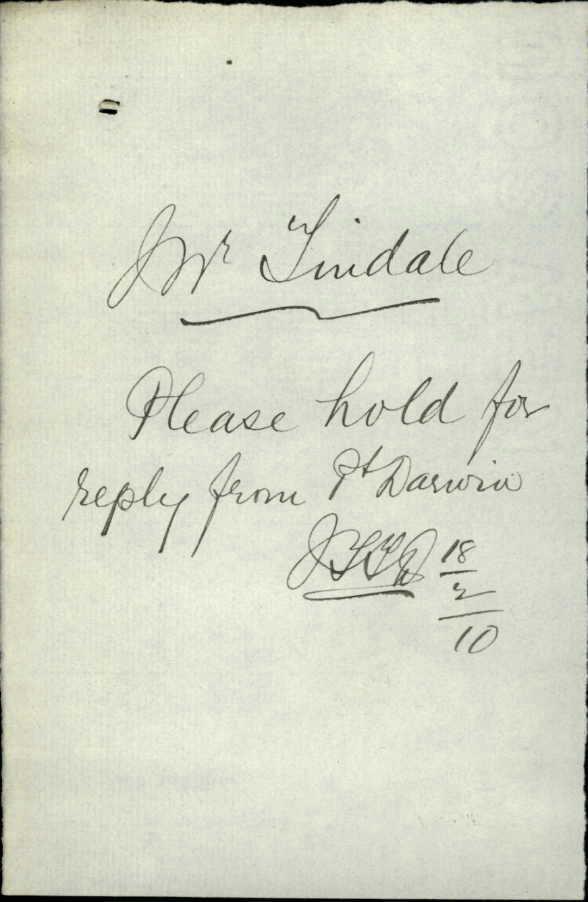 Mr Tindale
Please hold for
reply from Pt Darwin
18
2
10